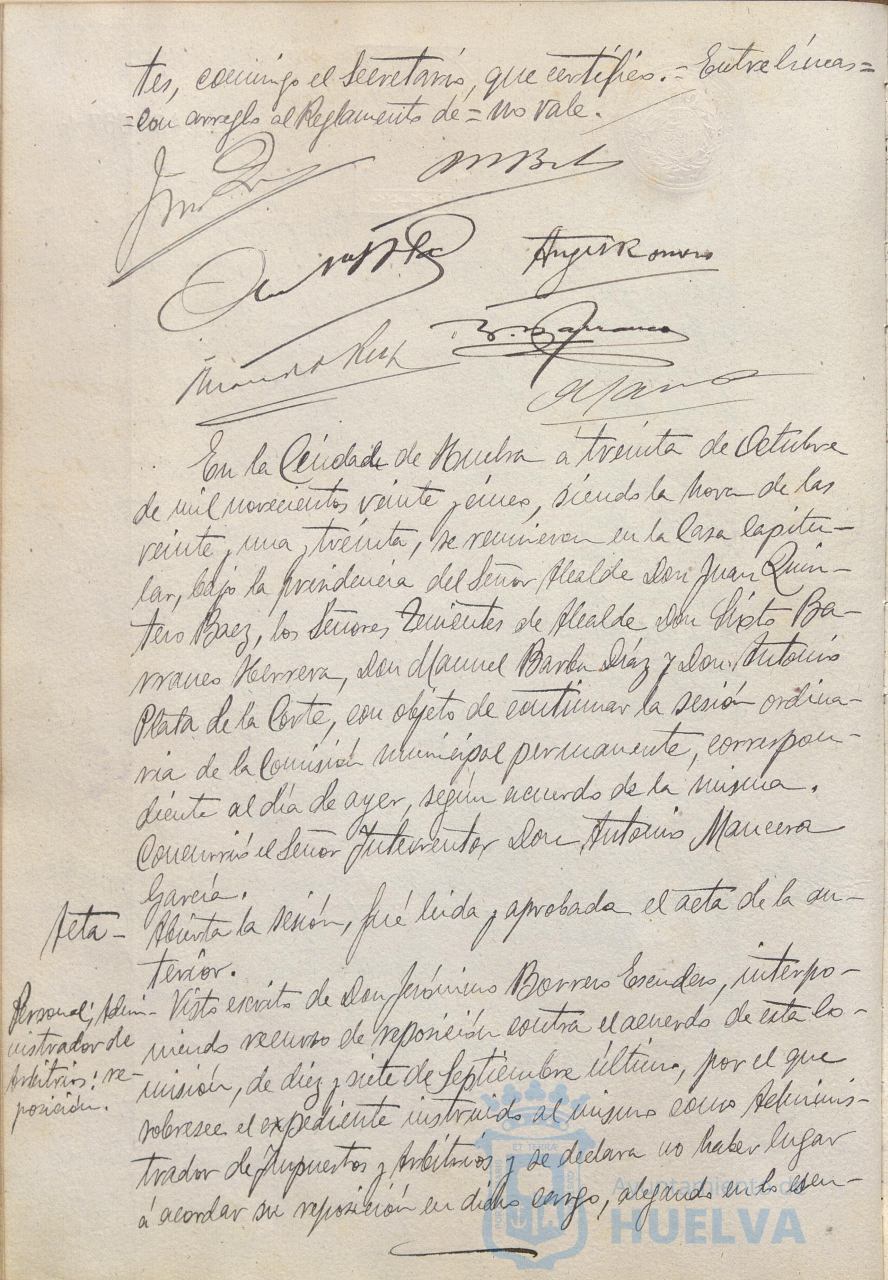 tes, conmigo el Secretario, que certifico.= Entre líneas=
=con arreglo al Reglamento de = no vale.
Angel Romero
En la Ciudade de Huelva a treinta de Octubre
de mil novecientos veinte y cinco, siendo la hora de las
veinte y una y treinta, se reunieron en la Casa Capitu-
lar, bajo la presidencia del Señor Alcalde Don Juan Quin-
tero Baez, los Señores Tenientes de Alcalde Don Sixto Ba-
rranco Herrera, Don Manuel Barba Díaz y Don Antonio
Plata de la Corte, con objeto de continuar la sesión ordina-
ria de la Comisión municipal permanente, correspon-
diente al día de ayer, según acuerdo de la misma.
Concurrió el Señor Interventor Don Antonio Mancera
García.
Acta-
Abierta la sesión, fué leida y aprobada el acta de la an-
terior.
Personal; Admi-
nistrador de
Arbitrios: re-
posición.
Visto escrito de Don Jerónimo Borrero Escudero, interpo-
niendo recurso de reposición contra el acuerdo de esta Co-
misión, de diez y siete de Septiembre último, por el que
sobresee el expediente instruido al mismo como Adminis-
trador de Impuestos y Arbitrios y se declara no haber lugar
á acordar su reposición en dicho cargo, alegando en lo esen-
Ayuntamiento de
HUELVA